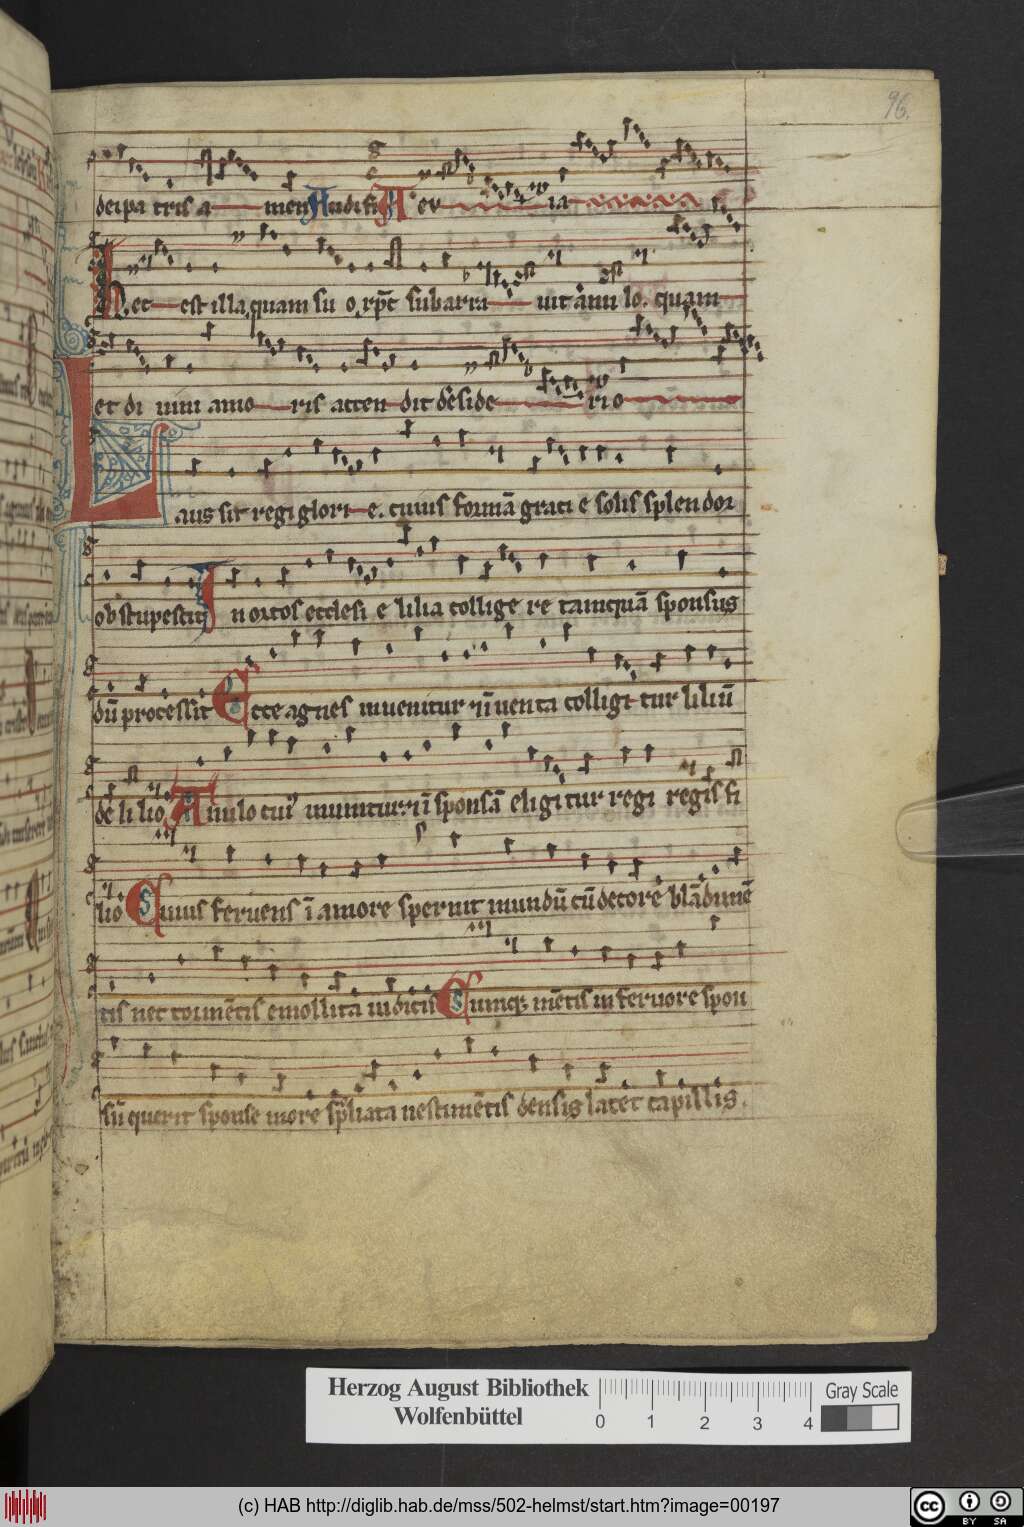 96.
dei pa tris a men Audi fi A er ia
Hec est illa quam su o xp̄c subarra uit anu lo. quam
et di uini amo ris accen dit deside rio
Laus sit regi glori e. cuius formā graci e solis splendor
obstupescit In ortos ecclesi e lilia collige re tamquā sponsus
dū processit Ecce agnes inuenitur ⁊ īuenta colligi tur liliū
de li lio Anulo cui' munitur ⁊ ī sponsā eligi tur regi regis fi
lio Cuius feruens ī amore spernit mundū cū decore blādimē
tis nec tormētis emollita inditis Cumq; mētis in feruore spon
sū querit sponse more spoliata uestimētis densis latet capillis.
Herzog August Bibliothek
Wolfenbüttel
0 1 2 3 4
Gray Scale
(c) HAB http://diglib.hab.de/mss/502-helmst/start.htm?image=00197
cc BY SA